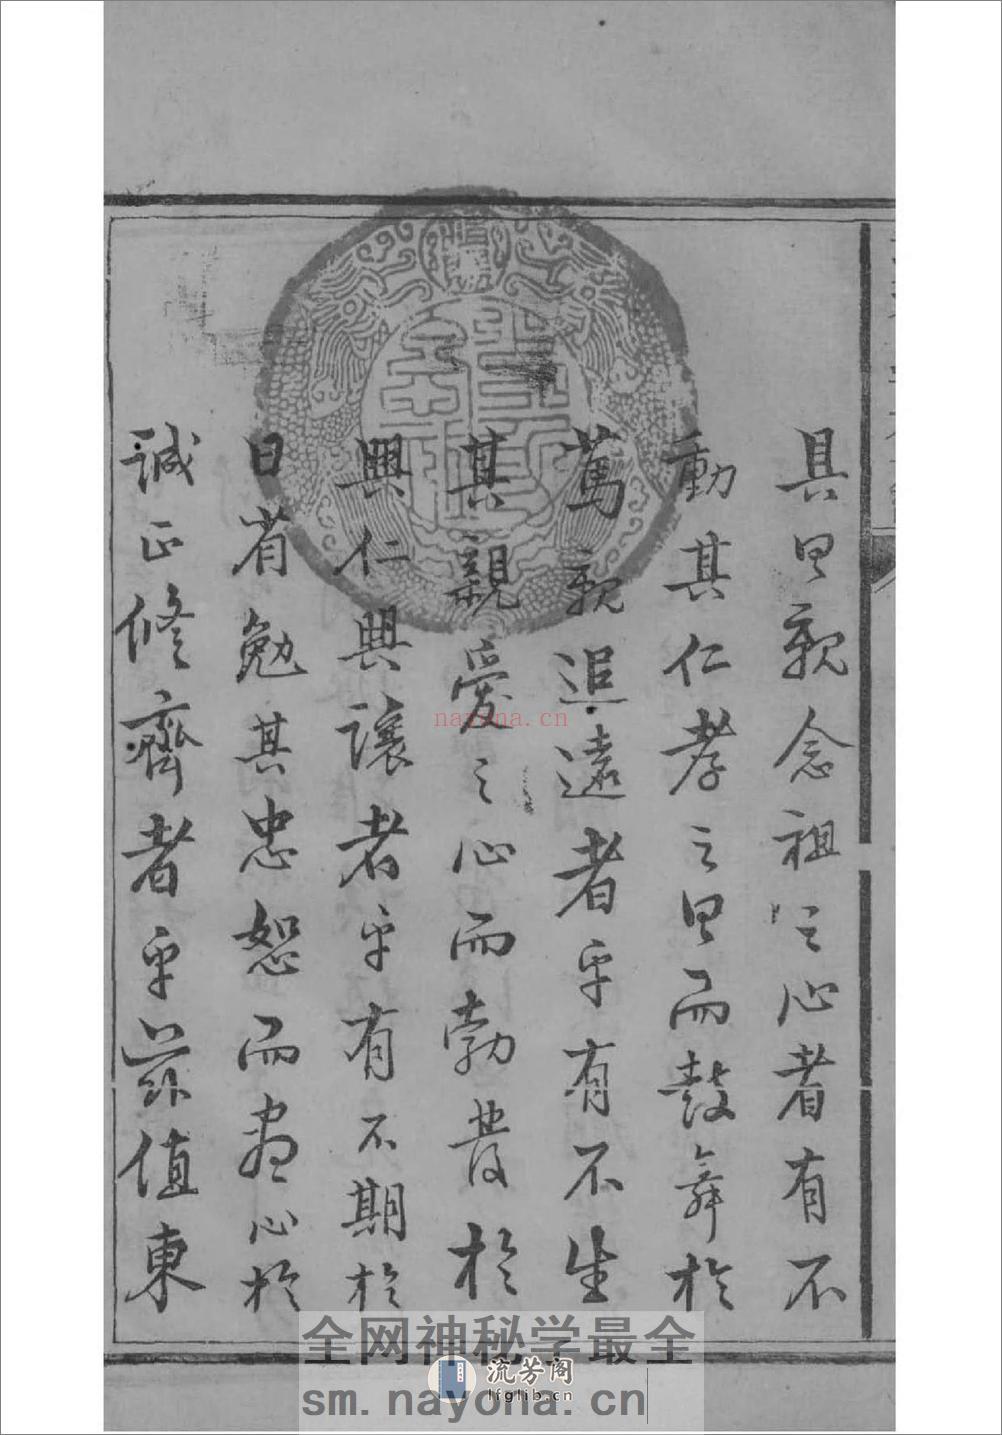 具思親念祖之心者有不
動其仁孝之思而鼓舞於
篤親追遠者乎有不生
其親愛之心而勃發於
興仁興讓者乎有不期於
日省勉其忠恕而盡心於
誠正修齊者乎茲值東
nayona.cn
全网神秘学最全
流芳阁
lfglib.cn
sm.nayona.cn